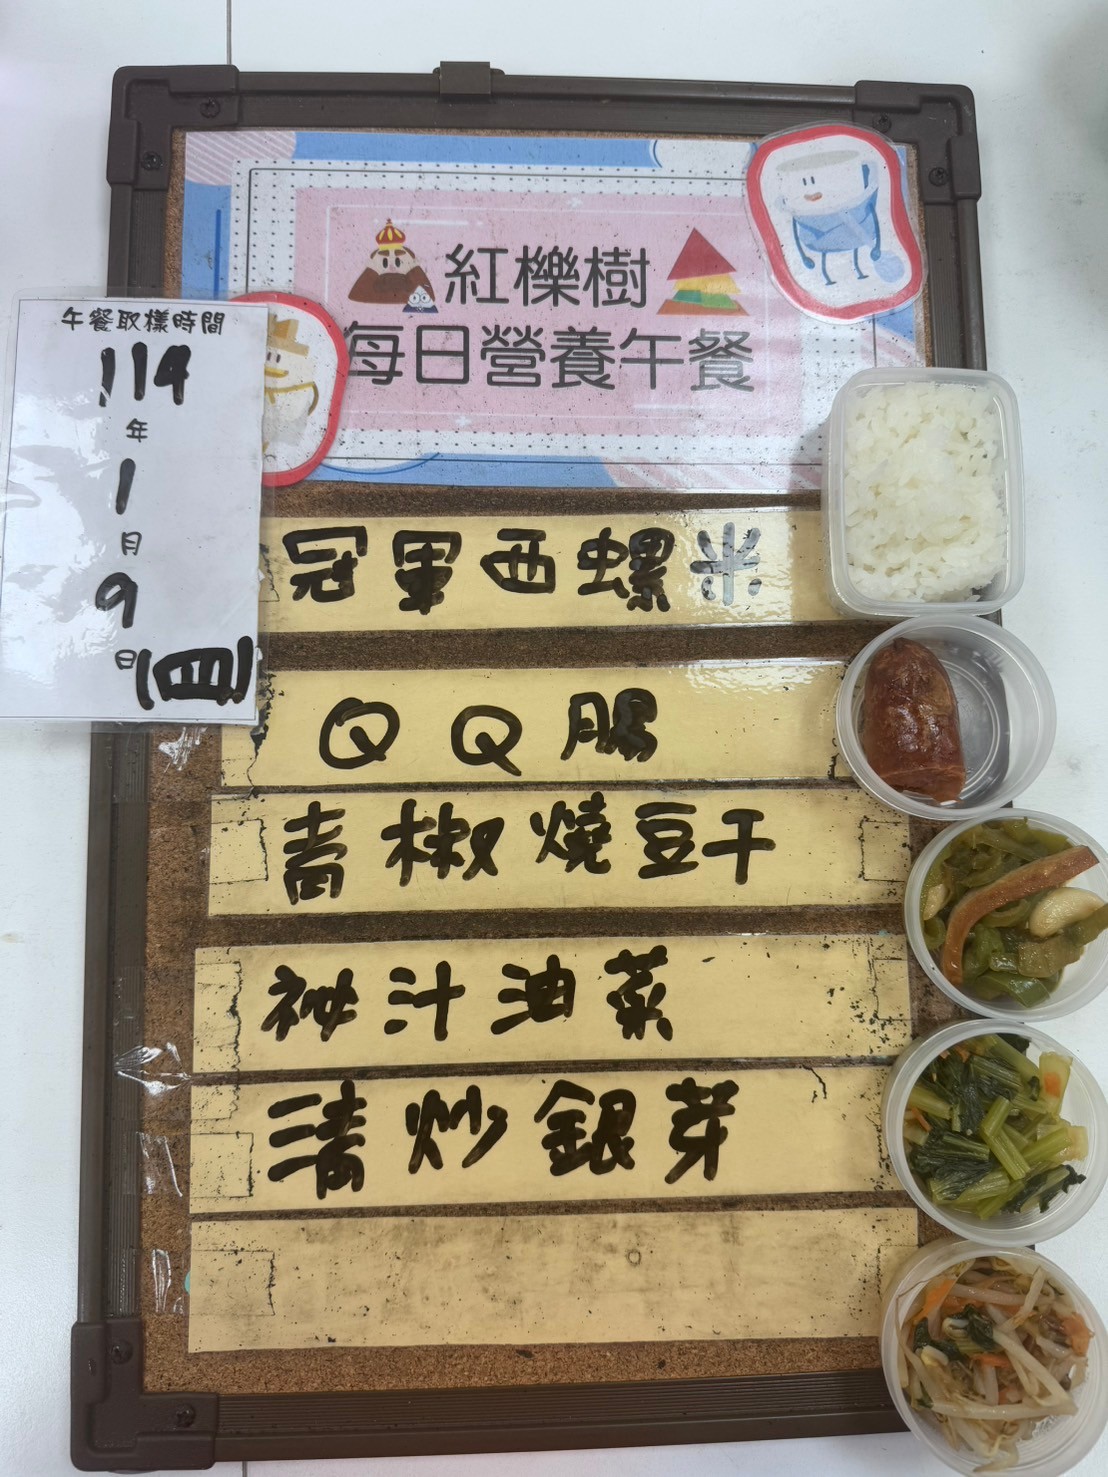 紅櫟樹
每日營養午餐
午餐取樣時間
114
年
1
月
9
日(四)
冠軍西螺米
QQ腸
青椒燒豆干
祕汁油菜
清炒銀芽